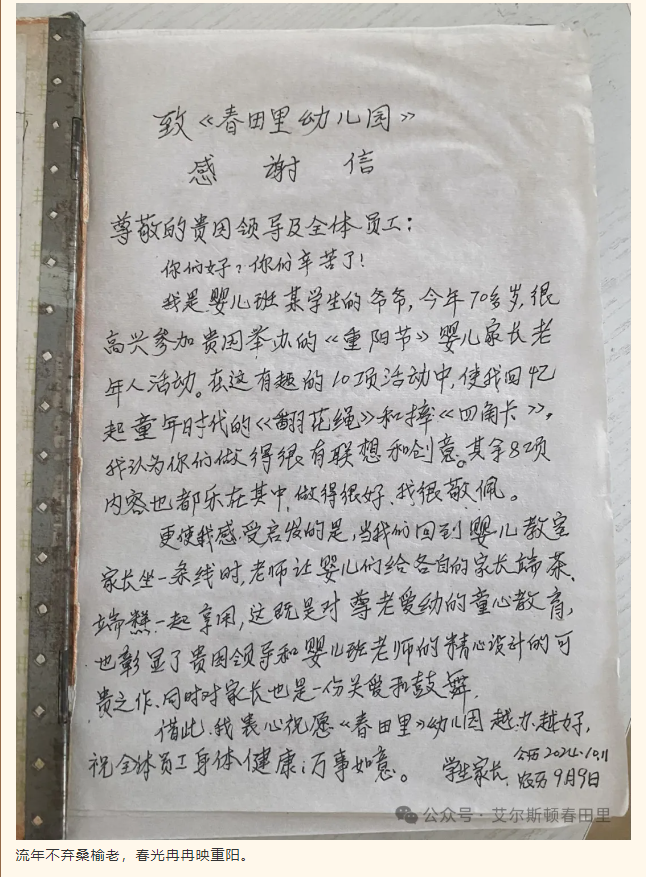 致《春田里幼儿园》
感谢信
尊敬的贵园领导及全体员工：
你们好？你们辛苦了！
我是婴儿班某学生的爷爷，今年70多岁，很
高兴参加贵园举办的《重阳节》婴儿家长老
年人活动。在这有趣的10项活动中，使我回忆
起童年时代的《翻花绳》和摔《四角卡》，
我认为你们做得很有联想和创意。其余8项
内容也都乐在其中，做得很好、我很敬佩。
更使我感受启发的是，当我们回到婴儿教室
家长坐一条线时，老师让婴儿们给各自的家长端茶、
端糕一起享用，这既是对尊老爱幼的童心教育，
也彰显了贵园领导和婴儿班老师的精心设计的可
贵之作、同时对家长也是一份关爱和鼓舞，
借此，我衷心祝愿《春田里》幼儿园越办越好，
祝全体员工身体健康；万事如意。
学生家长
公历2024.10.11
农历9月9日
公众号·艾尔斯顿春田里
流年不弃桑榆老，春光冉冉映重阳。